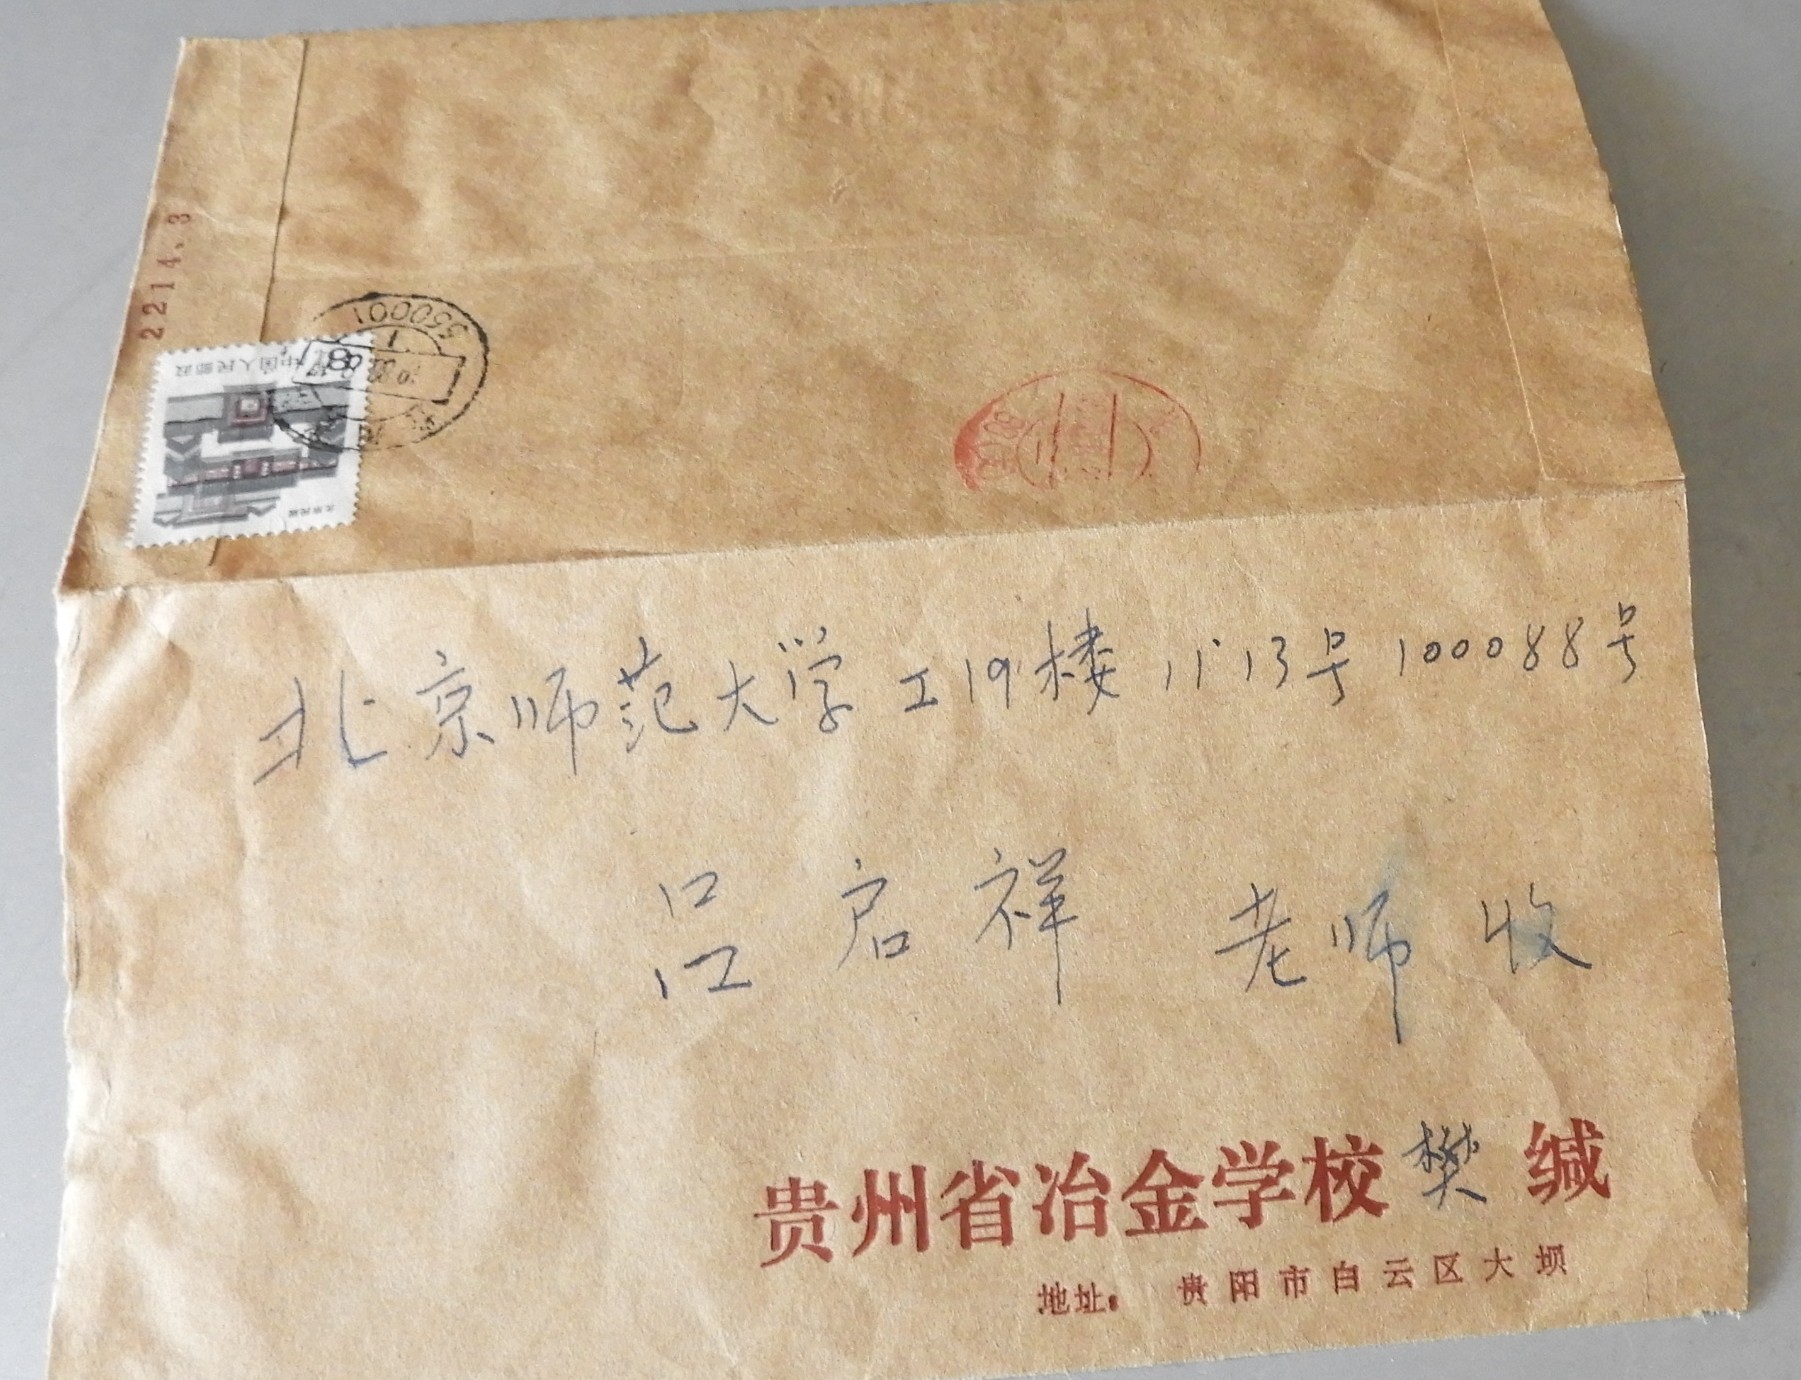 2214.3
550001
中国人民邮政
8
北京民居
北京师范大学工19楼11-13号100088号
吕启祥 老师 收
贵州省冶金学校樊缄
地址：贵阳市白云区大坝